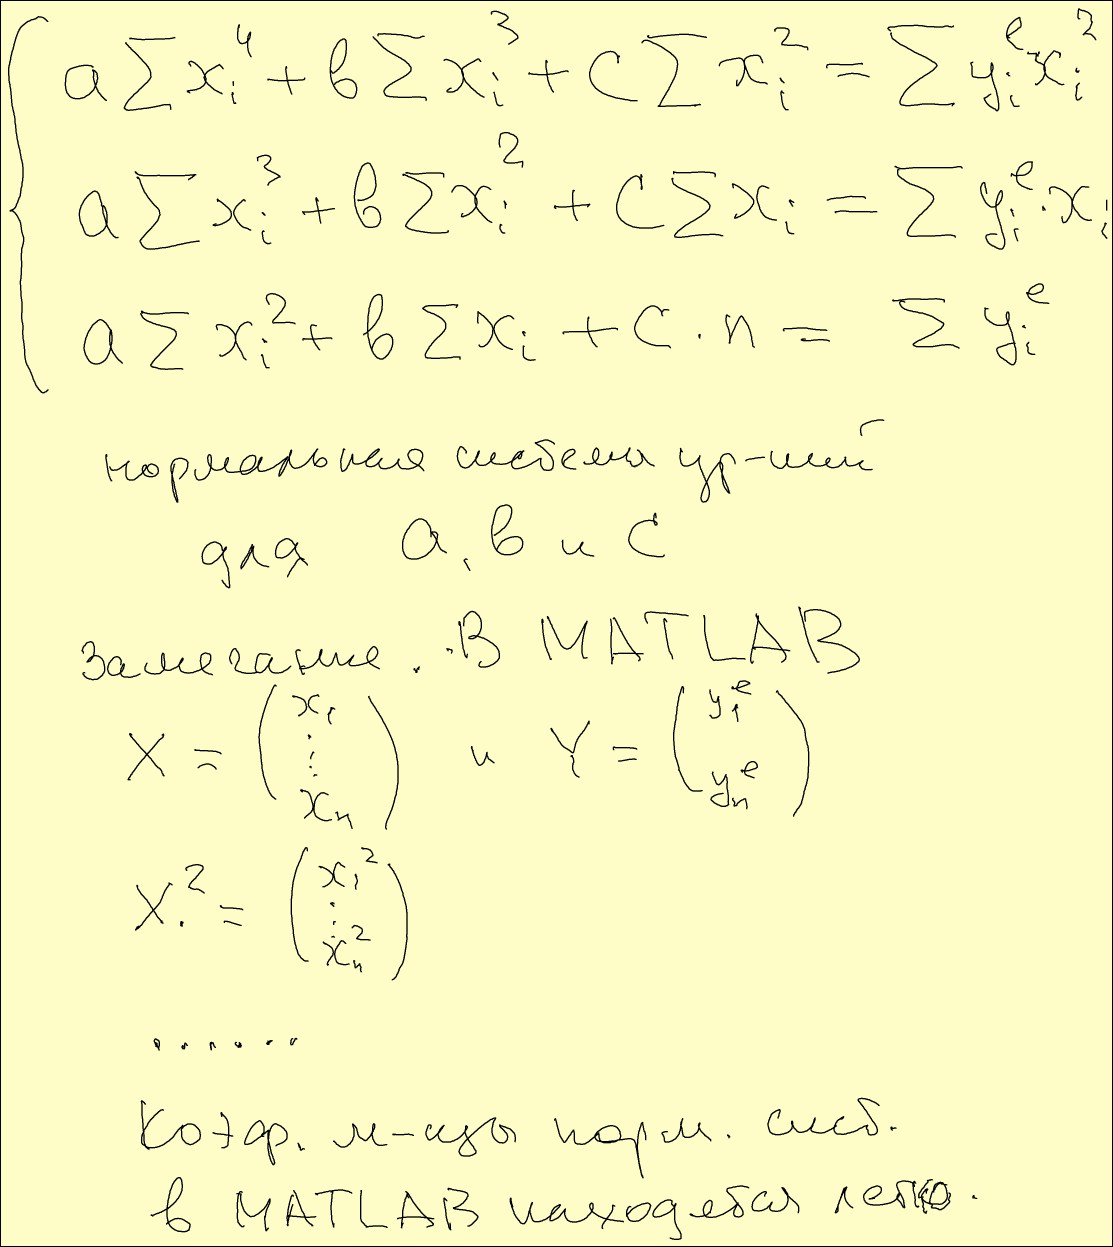 a∑xᵢ⁴ + в∑xᵢ³ + c∑xᵢ² = ∑yᵢᵉxᵢ²
a∑xᵢ³ + в∑xᵢ² + c∑xᵢ = ∑yᵢᵉ·xᵢ
a∑xᵢ² + в∑xᵢ + c·n = ∑yᵢᵉ
нормальная система ур-ний
для a, в и c
Замечание. В MATLAB
X = (x₁ ⋮ xₙ) и Y = (y₁ᵉ yₙᵉ)
X.² = (x₁² ⋮ xₙ²)
......
Коэф. м-цы норм. сист.
в MATLAB находятся легко.